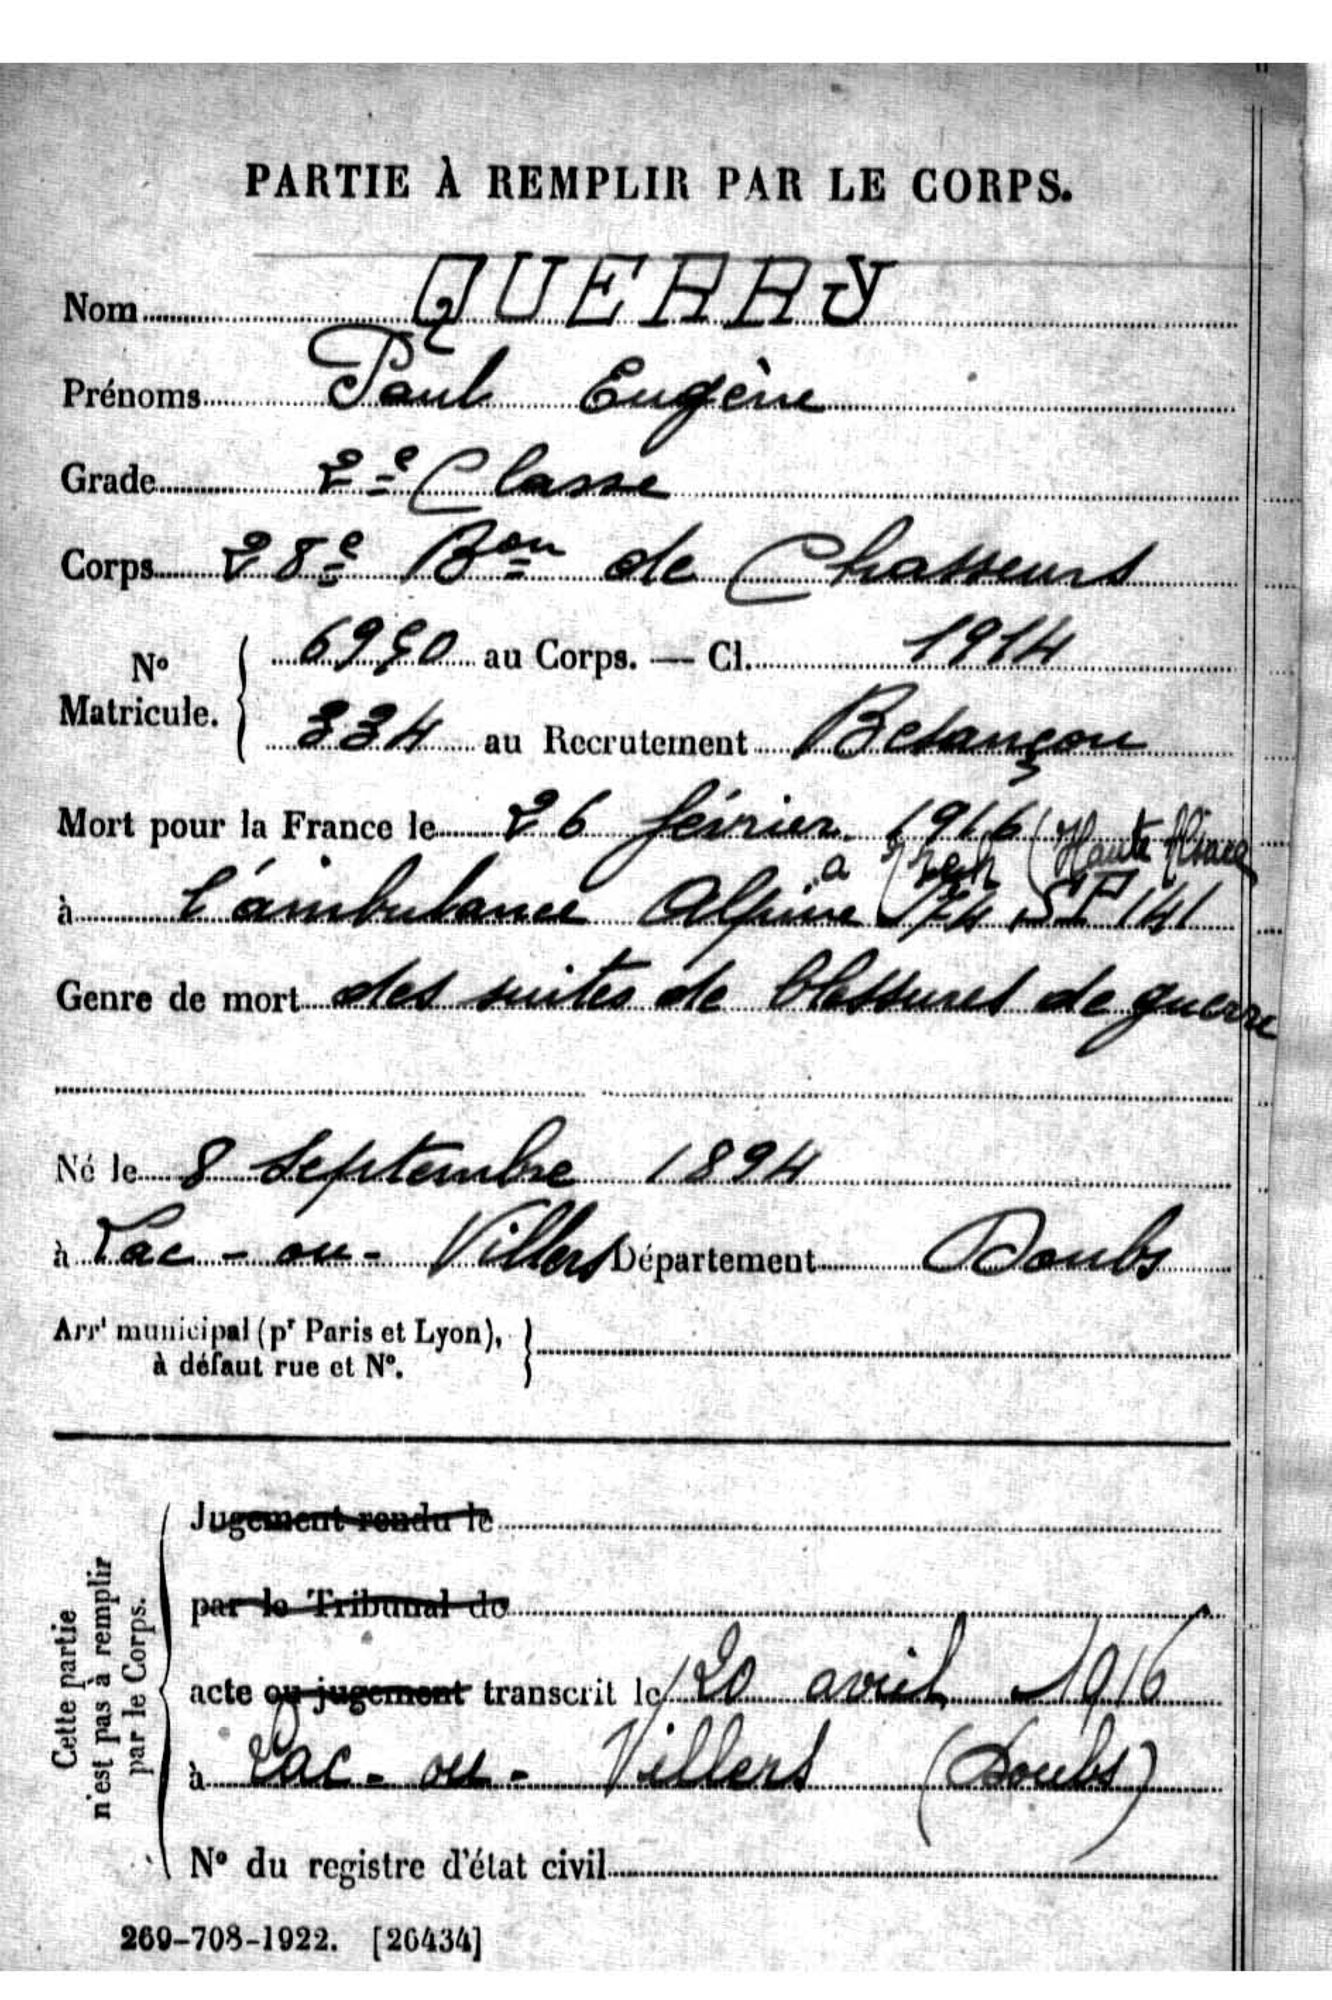 PARTIE À REMPLIR PAR LE CORPS.
Nom QUERRY
Prénoms Paul Eugène
Grade 2e Classe
Corps 28e Bon de Chasseurs
No Matricule. { 6950 au Corps. — Cl. 1914
334 au Recrutement Besançon
Mort pour la France le 26 février 1916 (Haute Alsace
à
à l'ambulance Alpine SP 141
Genre de mort des suites de blessures de guerre
Né le 8 Septembre 1894
à Lac-ou-Villers Département Doubs
Arrt municipal (pr Paris et Lyon),
à défaut rue et No.
Cette partie
n'est pas à remplir
par le Corps.
Jugement rendu le
par le Tribunal de
acte ou jugement transcrit le 20 avril 1916
à Lac-ou-Villers (Doubs)
No du registre d'état civil
269-708-1922. [26434]